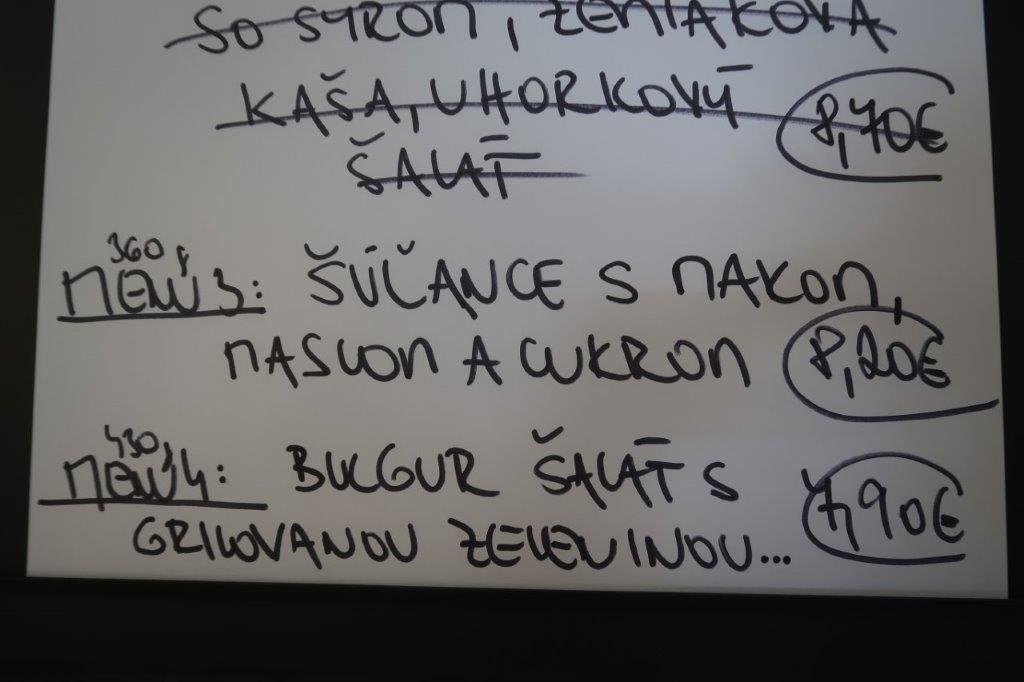 SO SYROM, ZEMIAKOVÁ
KAŠA, UHORKOVÝ 8,70€
ŠALÁT
360g
MENU 3: ŠÚĽANCE S MAKOM,
MASLOM A CUKROM 8,20€
430g
MENU 4: BULGUR ŠALÁT S
GRILOVANOU ZELENINOU... 7,90€